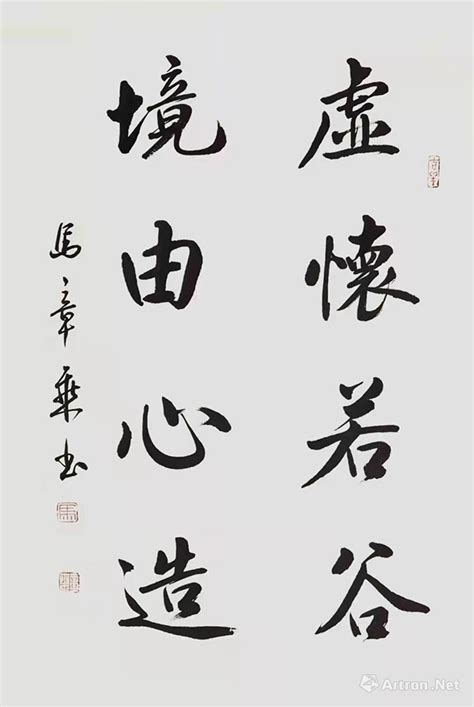 虛懷若谷
境由心造
馬章乗书
Artron.Net